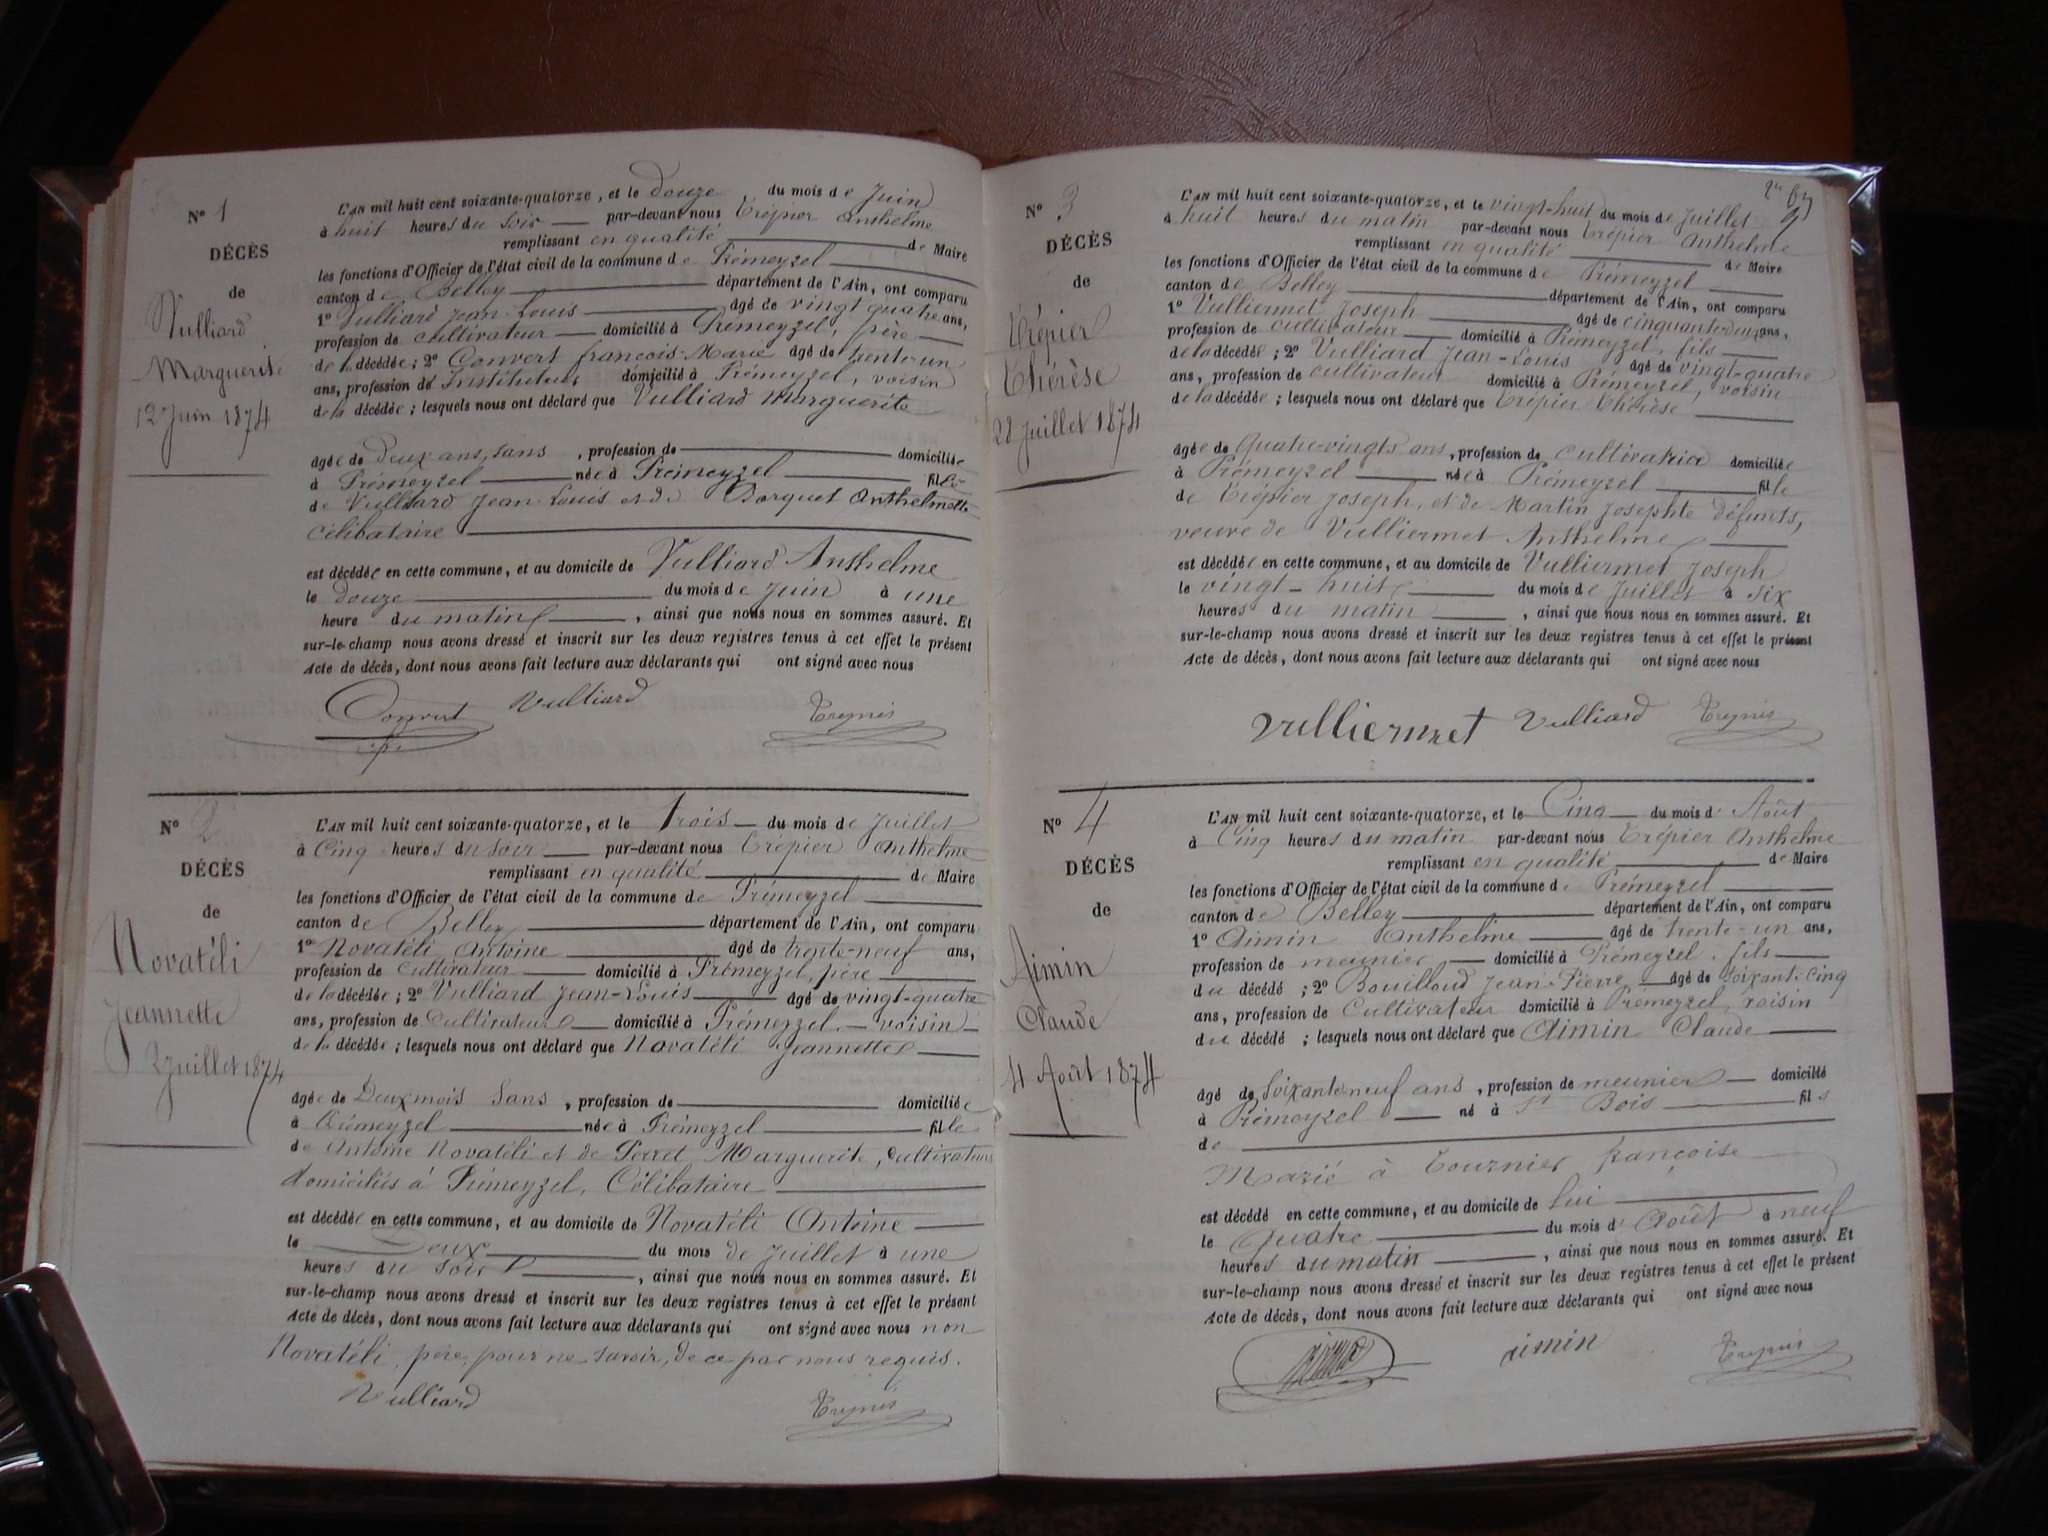 N° 1
DÉCÈS
de
Vulliard
Marguerite
12 Juin 1874
L'AN mil huit cent soixante-quatorze, et le douze du mois de Juin
à huit heures du soir par-devant nous Trépier Anthelme
remplissant en qualité de Maire
les fonctions d'Officier de l'état civil de la commune de Prémeyzel
canton de Belley département de l'Ain, ont comparu
1° Vulliard Jean-Louis âgé de vingt quatre ans,
profession de cultivateur domicilié à Prémeyzel, père
de la décédée ; 2° Convert françois-Marie âgé de trente-un
ans, profession de Instituteur domicilié à Prémeyzel, voisin
de la décédée ; lesquels nous ont déclaré que Vulliard Marguerite
âgée de Deux ans, sans , profession de domiciliée
à Prémeyzel née à Prémeyzel fille
de Vulliard Jean-Louis et de Borquet Anthelmette
célibataire
est décédée en cette commune, et au domicile de Vulliard Anthelme
le douze du mois de Juin à une
heure du matin , ainsi que nous nous en sommes assuré. Et
sur-le-champ nous avons dressé et inscrit sur les deux registres tenus à cet effet le présent
Acte de décès, dont nous avons fait lecture aux déclarants qui ont signé avec nous
Convert Vulliard Trepier
N° 2
DÉCÈS
de
Novatéli
Jeannette
2 Juillet 1874
L'AN mil huit cent soixante-quatorze, et le Trois du mois de Juillet
à Cinq heures du soir par-devant nous Trépier Anthelme
remplissant en qualité de Maire
les fonctions d'Officier de l'état civil de la commune de Prémeyzel
canton de Belley département de l'Ain, ont comparu
1° Novatéli Antoine âgé de trente-neuf ans,
profession de Cultivateur domicilié à Prémeyzel, père
de la décédée ; 2° Vulliard Jean-Louis âgé de vingt-quatre
ans, profession de Cultivateur domicilié à Prémeyzel - voisin
de la décédée ; lesquels nous ont déclaré que Novatéli Jeannette
âgée de Deux mois Sans , profession de domiciliée
à Prémeyzel née à Prémeyzel fille
de Antoine Novatéli et de Perret Marguerite, Cultivateurs
domiciliés à Prémeyzel, Célibataire
est décédée en cette commune, et au domicile de Novatéli Antoine
le Deux du mois de Juillet à une
heures du soir , ainsi que nous nous en sommes assuré. Et
sur-le-champ nous avons dressé et inscrit sur les deux registres tenus à cet effet le présent
Acte de décès, dont nous avons fait lecture aux déclarants qui ont signé avec nous non
Novatéli, père, pour ne savoir, de ce par nous requis.
Vulliard Trepier
N° 3
DÉCÈS
de
Trépier
Thérèse
28 Juillet 1874
L'AN mil huit cent soixante-quatorze, et le vingt-huit du mois de Juillet
à huit heures du matin par-devant nous Trépier Anthelme
remplissant en qualité de Maire
les fonctions d'Officier de l'état civil de la commune de Prémeyzel
canton de Belley département de l'Ain, ont comparu
1° Vulliermet Joseph âgé de cinquante-deux ans,
profession de cultivateur domicilié à Prémeyzel, fils
de la décédée ; 2° Vulliard Jean-Louis âgé de vingt-quatre
ans, profession de cultivateur domicilié à Prémeyzel, voisin
de la décédée ; lesquels nous ont déclaré que Trépier Thérèse
âgée de Quatre-vingts ans, profession de cultivatrice domiciliée
à Prémeyzel née à Prémeyzel fille
de Trépier Joseph, et de Martin Josephte défunts,
veuve de Vulliermet Anthelme
est décédée en cette commune, et au domicile de Vulliermet Joseph
le vingt-huit du mois de Juillet à six
heures du matin , ainsi que nous nous en sommes assuré. Et
sur-le-champ nous avons dressé et inscrit sur les deux registres tenus à cet effet le présent
Acte de décès, dont nous avons fait lecture aux déclarants qui ont signé avec nous
Vulliermet Vulliard Trepier
N° 4
DÉCÈS
de
Aimin
Claude
4 Août 1874
L'AN mil huit cent soixante-quatorze, et le Cinq du mois d'Août
à Cinq heures du matin par-devant nous Trépier Anthelme
remplissant en qualité de Maire
les fonctions d'Officier de l'état civil de la commune de Prémeyzel
canton de Belley département de l'Ain, ont comparu
1° Aimin Anthelme âgé de trente-un ans,
profession de meunier domicilié à Prémeyzel, fils
du décédé ; 2° Bouilloud Jean-Pierre âgé de soixante-cinq
ans, profession de Cultivateur domicilié à Prémeyzel, voisin
du décédé ; lesquels nous ont déclaré que Aimin Claude
âgé de Soixante neuf ans, profession de meunier domicilié
à Prémeyzel né à St Bois fils
de
Marié à Tournier françoise
est décédé en cette commune, et au domicile de lui
le Quatre du mois d'Août à neuf
heures du matin , ainsi que nous nous en sommes assuré. Et
sur-le-champ nous avons dressé et inscrit sur les deux registres tenus à cet effet le présent
Acte de décès, dont nous avons fait lecture aux déclarants qui ont signé avec nous
aimin Trepier